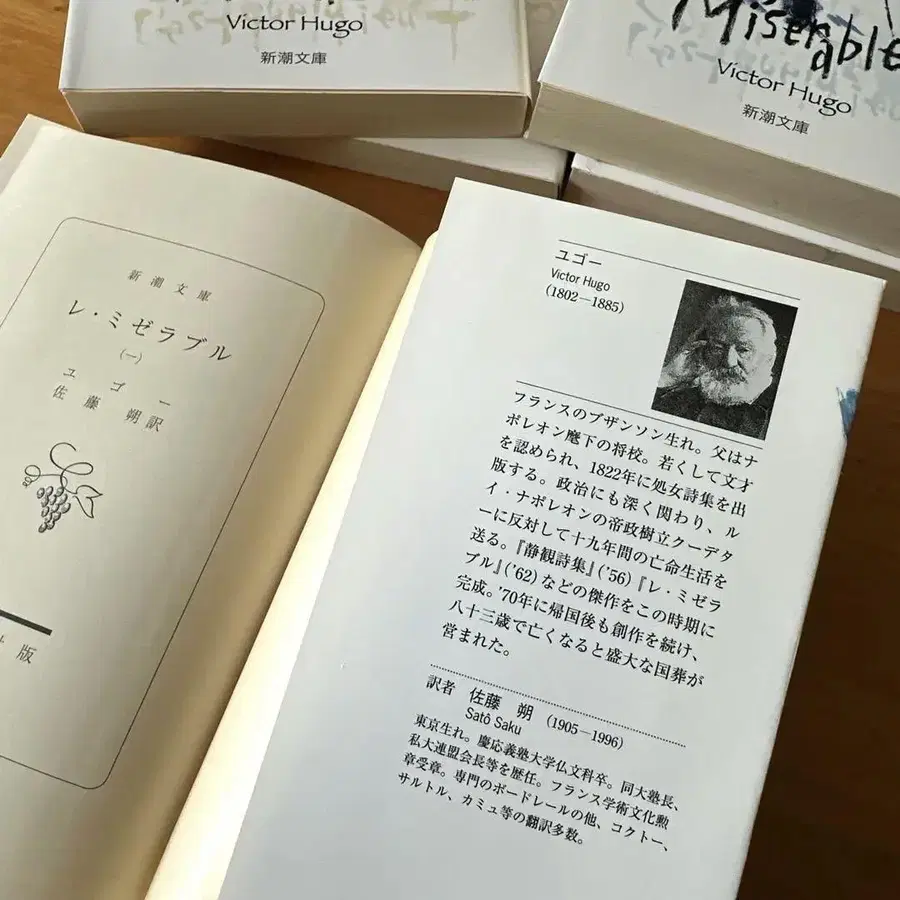 Victor Hugo
新潮文庫
Miserable
Victor Hugo
新潮文庫
新潮文庫
レ・ミゼラブル
(一)
ユゴー
佐藤 朔訳
版
ユゴー
Victor Hugo
(1802―1885)
フランスのブザンソン生れ。父はナ
ポレオン麾下の将校。若くして文才
を認められ、1822年に処女詩集を出
版する。政治にも深く関わり、ル
イ・ナポレオンの帝政樹立クーデタ
ーに反対して十九年間の亡命生活を
送る。『静観詩集』('56)『レ・ミゼラ
ブル』('62)などの傑作をこの時期に
完成。'70年に帰国後も創作を続け、
八十三歳で亡くなると盛大な国葬が
営まれた。
訳者 佐藤 朔 (1905―1996)
Satô Saku
東京生れ。慶応義塾大学仏文科卒。同大塾長、
私大連盟会長等を歴任。フランス学術文化勲
章受章。専門のボードレールの他、コクトー、
サルトル、カミュ等の翻訳多数。